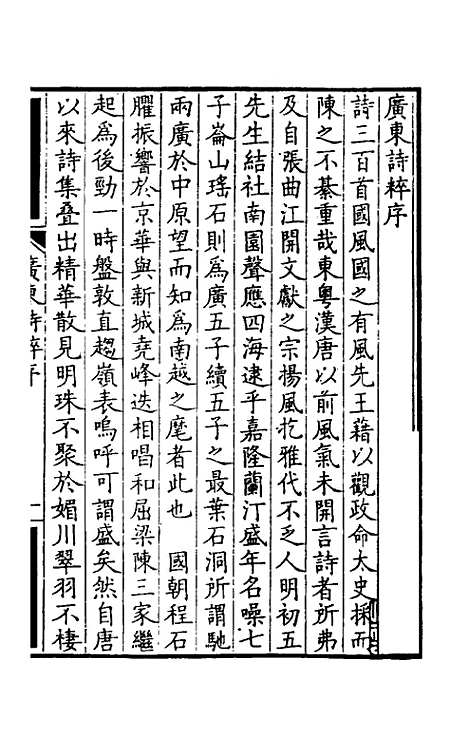 廣東詩粹序
詩三百首國風國之有風先王藉以觀政命太史採而
陳之不綦重哉東粵漢唐以前風氣未開言詩者所弗
及自張曲江開文獻之宗揚風扢雅代不乏人明初五
先生結社南園聲應四海逮乎嘉隆蘭汀盛年名噪七
子崙山瑤石則爲廣五子續五子之最葉石洞所謂馳
兩廣於中原望而知爲南越之麾者此也　國朝程石
臞振響於京華與新城堯峰迭相唱和屈梁陳三家繼
起爲後勁一時盤敦直趨嶺表嗚呼可謂盛矣然自唐
以來詩集叠出精華散見明珠不聚於媚川翠羽不棲
廣東詩粹序